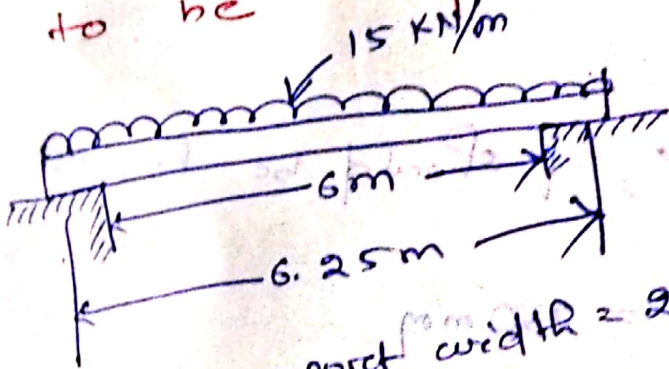 to be
15 KN/m
6m
6.25m
width = 2